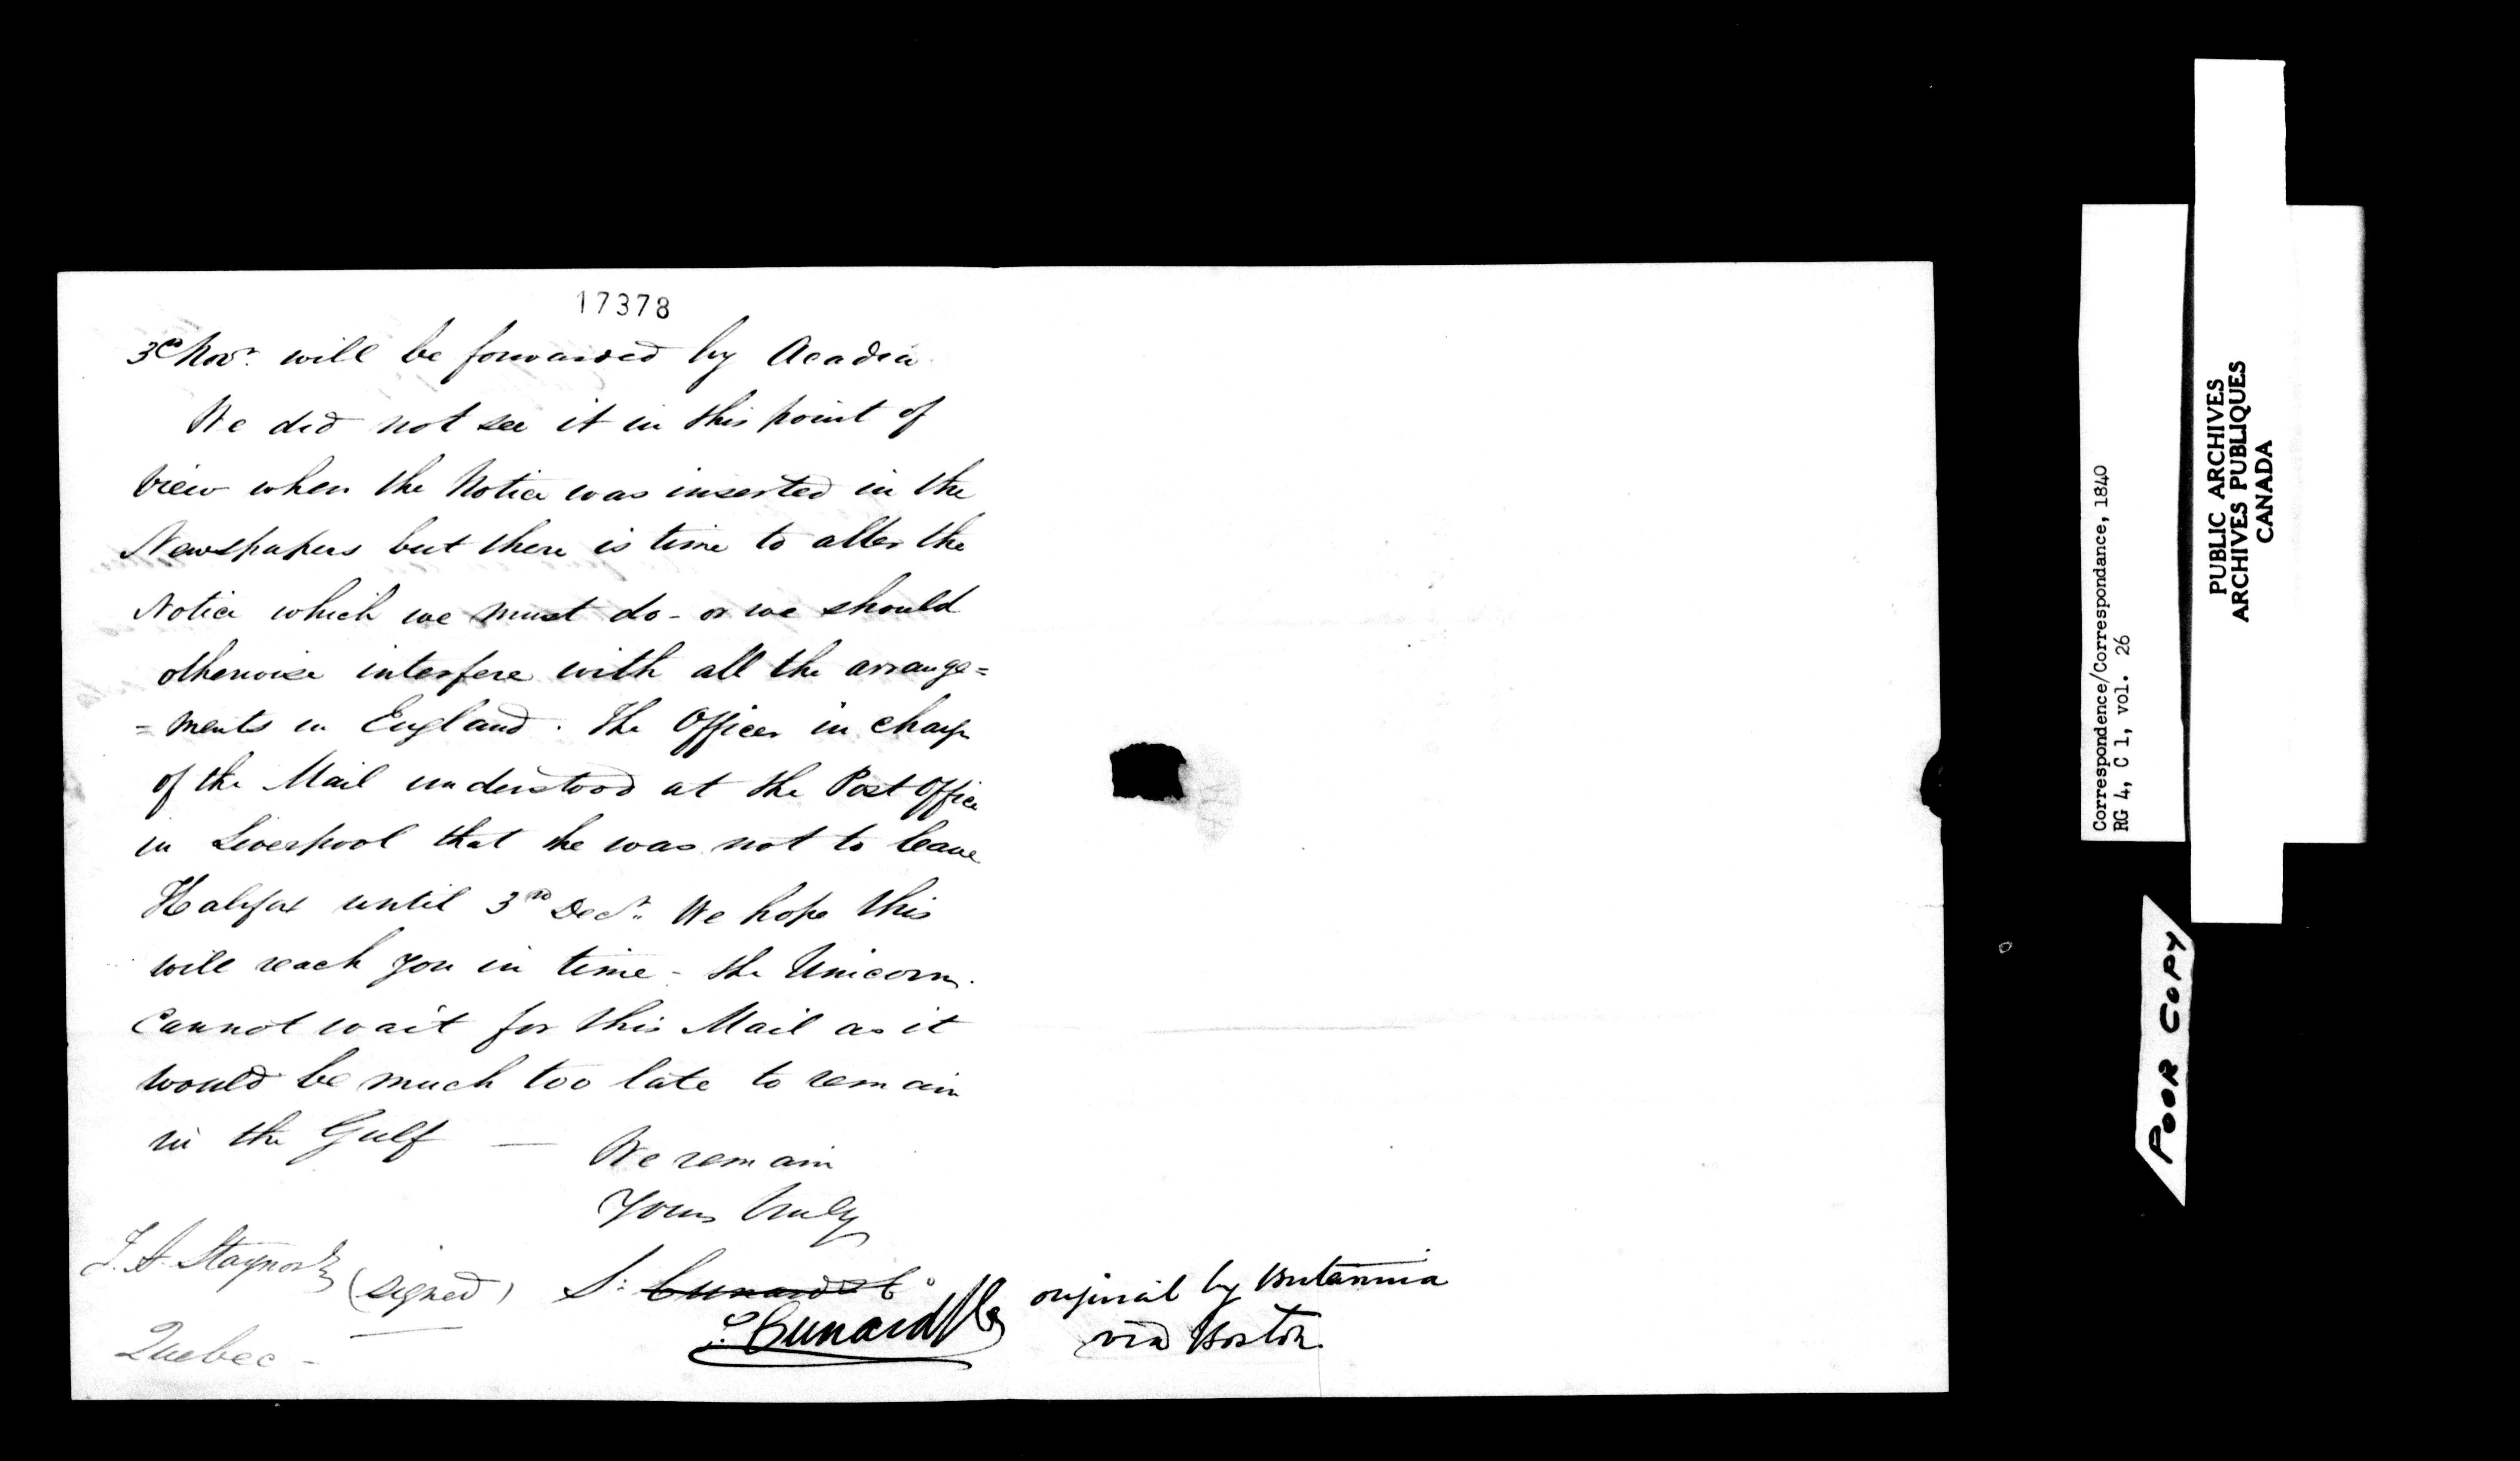 17378
3rd Novr. will be forwarded by Acadia
We did not see it in this point of
view when the Notice was inserted in the
Newspapers but there is time to alter the
Notice which we must do - or we should
otherwise interfere with all the arrange=
=ments in England. The Officer in charge
of the Mail understood at the Post Office
in Liverpool that he was not to leave
Halifax until 3rd Decr. We hope this
will reach you in time - the Unicorn
Cannot wait for this Mail as it
would be much too late to remain
in the Gulf —
We remain
Yours truly
(signed) S: Cunard & Co
S. Cunard & Co
T. A. Stayner
Quebec -
original by Britannia
via Boston.
Correspondence/Correspondance, 1840
RG 4, C 1, vol. 26
PUBLIC ARCHIVES
ARCHIVES PUBLIQUES
CANADA
POOR COPY